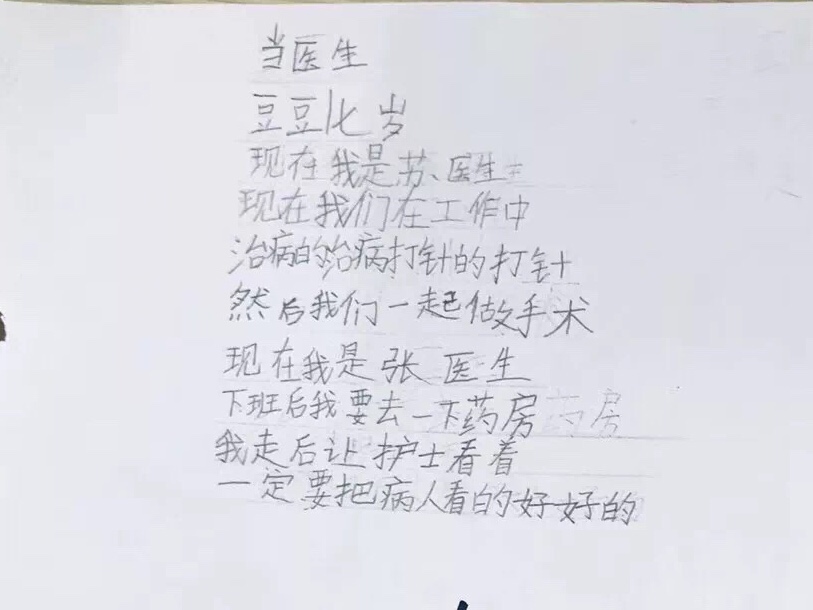 当医生
豆豆七岁
现在我是苏医生
现在我们在工作中
治病的治病打针的打针
然后我们一起做手术
现在我是张医生
下班后我要去一下药房
我走后让护士看着
一定要把病人看的好好的